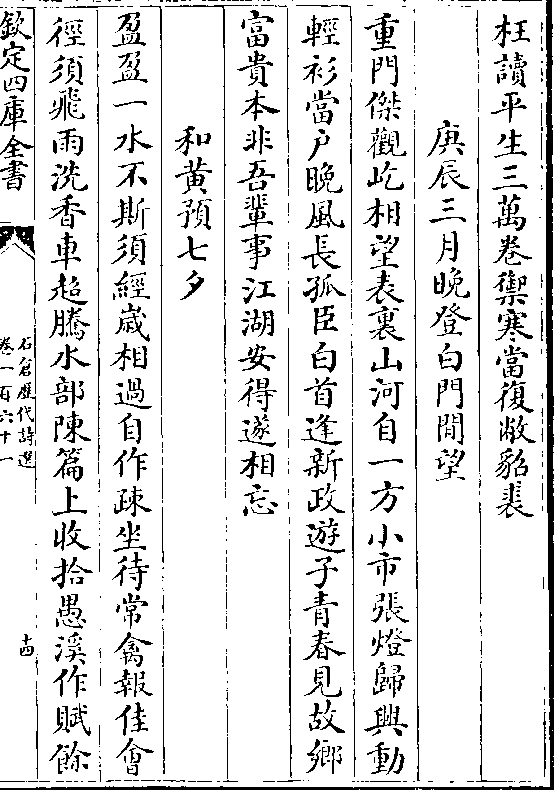 枉讀平生三萬卷禦寒當復敝貂裘
庚辰三月晚登白門閒望
重門傑觀屹相望表裏山河自一方小市張燈歸興動
輕衫當户晚風長孤臣白首逢新政遊子青春見故鄉
富貴本非吾輩事江湖安得遂相忘
和黄預七夕
盈盈一水不斯須經歲相過自作疎坐待常禽報佳會
徑須飛雨洗香車超騰水部陳篇上收拾愚溪作賦餘
欽定四庫全書
石倉歷代詩選
卷一百六十一
十四